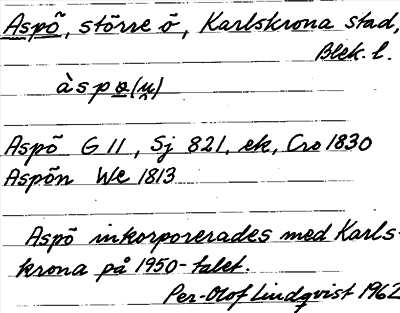 Aspö, större ö, Karlskrona stad,
Blek. l.
àspọ(ụ)
Aspö G 11, Sj 821, ek, Cro 1830
Aspön We 1813
Aspö inkorporerades med Karls-
krona på 1950-talet.
Per-Olof Lindqvist 1962